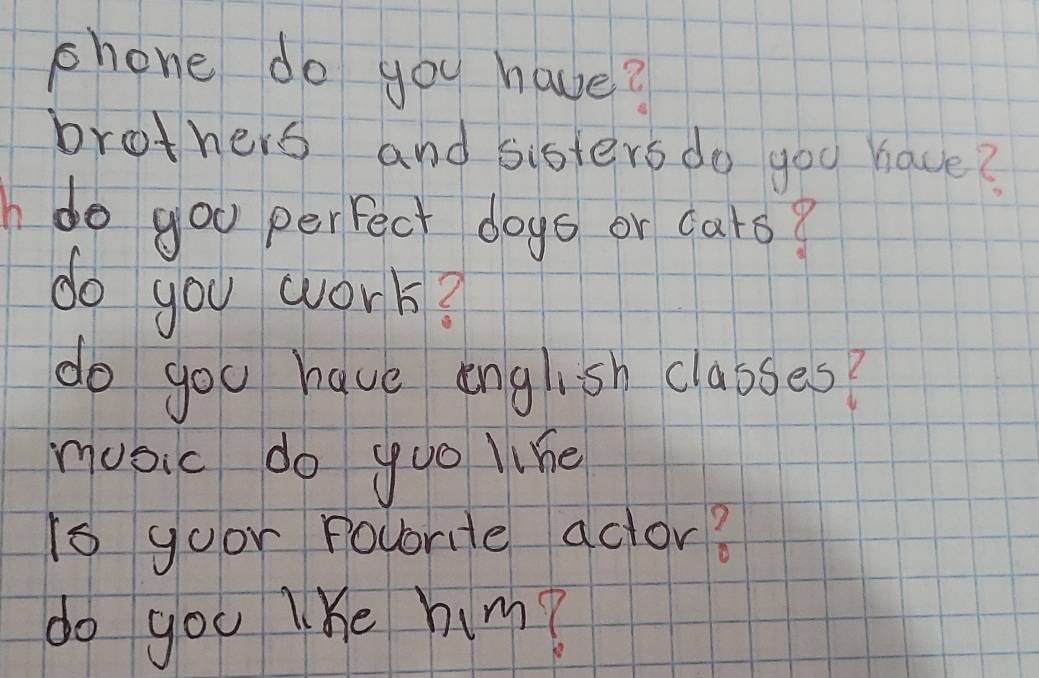 phone do you have?
brothers and sisters do you have?
h do you perfect dogs or cats?
do you work?
do you have english classes?
music do yuo like
is yuor Fovorite actor?
do you like him?